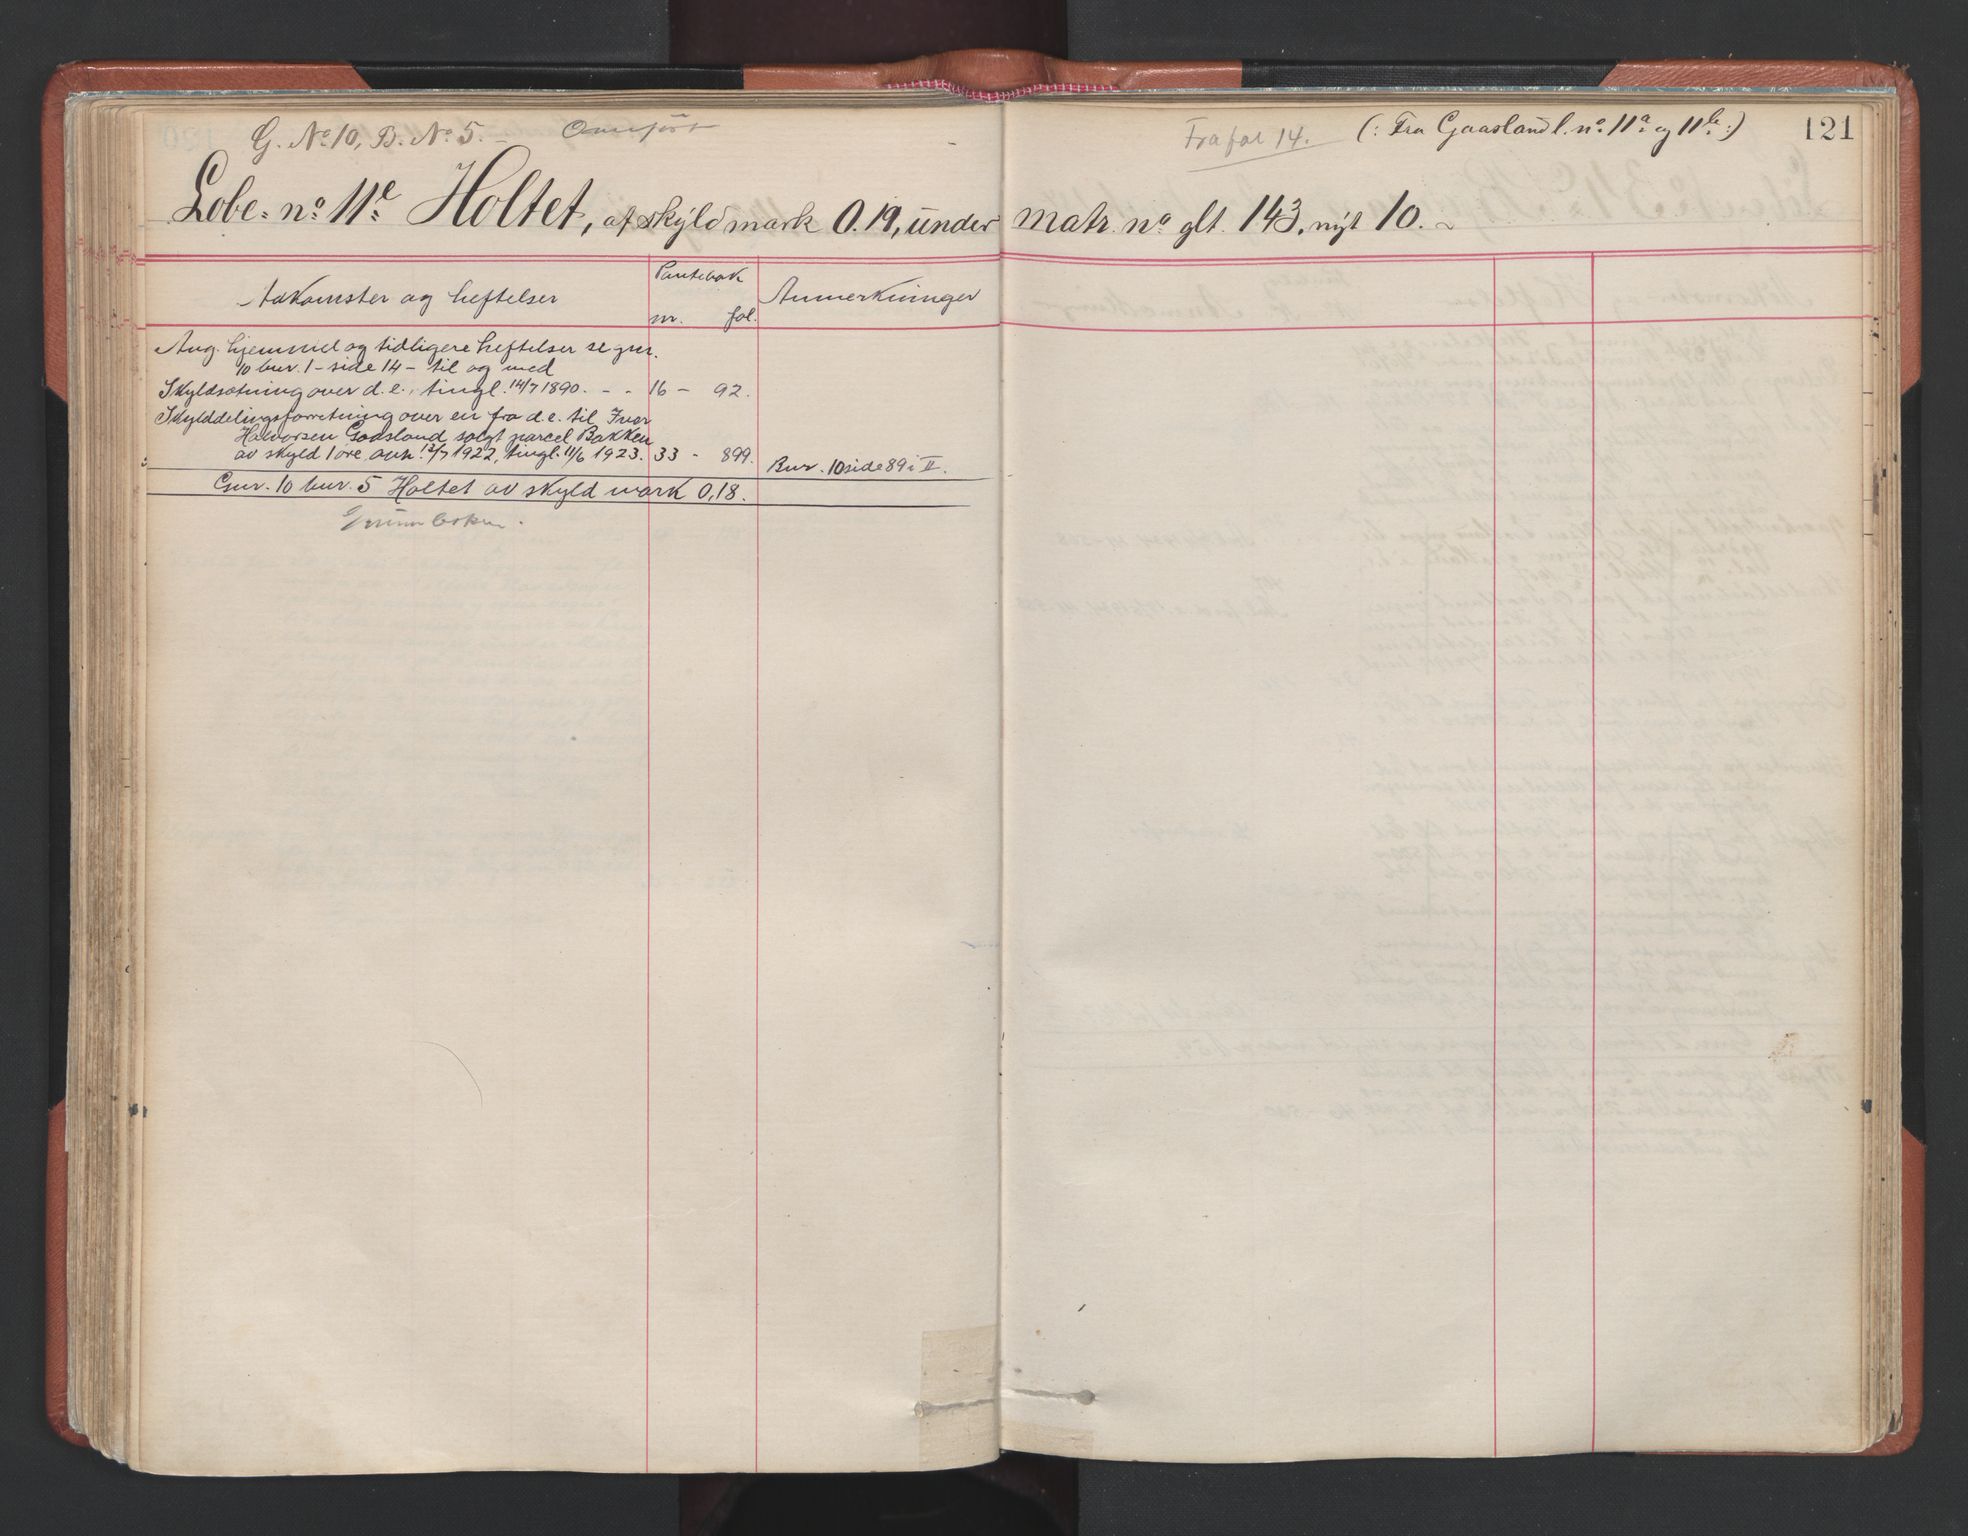 G. No 10, B. No 5. Omført
Fra fol 14. (: Fra Gaasland l. no 11a og 11b :) 121
Løbe- no 11e Holtet, af skyld mark 0.19, under matr. no glt. 143, nyt 10.
Adkomster og heftelser
Pantebok
nr. fol.
Anmerkninger
Ang. hjemmel og tidligere heftelser se gnr.
10 bnr. 1 - side 14 - til og med
Skyldsætning over d. e., tingl. 14/7 1890. - - 16 - 92.
Skylddelingsforretning over en fra d. e. til Ivar
Halvorsen Gaasland solgt parcel Bakken
av skyld 1 øre, avh. 12/7 1922, tingl. 11/6 1923. 33 - 899. Bnr. 10 side 89 i II.
Gnr. 10 bnr. 5 Holtet av skyld mark 0,18.
Grunnboken.